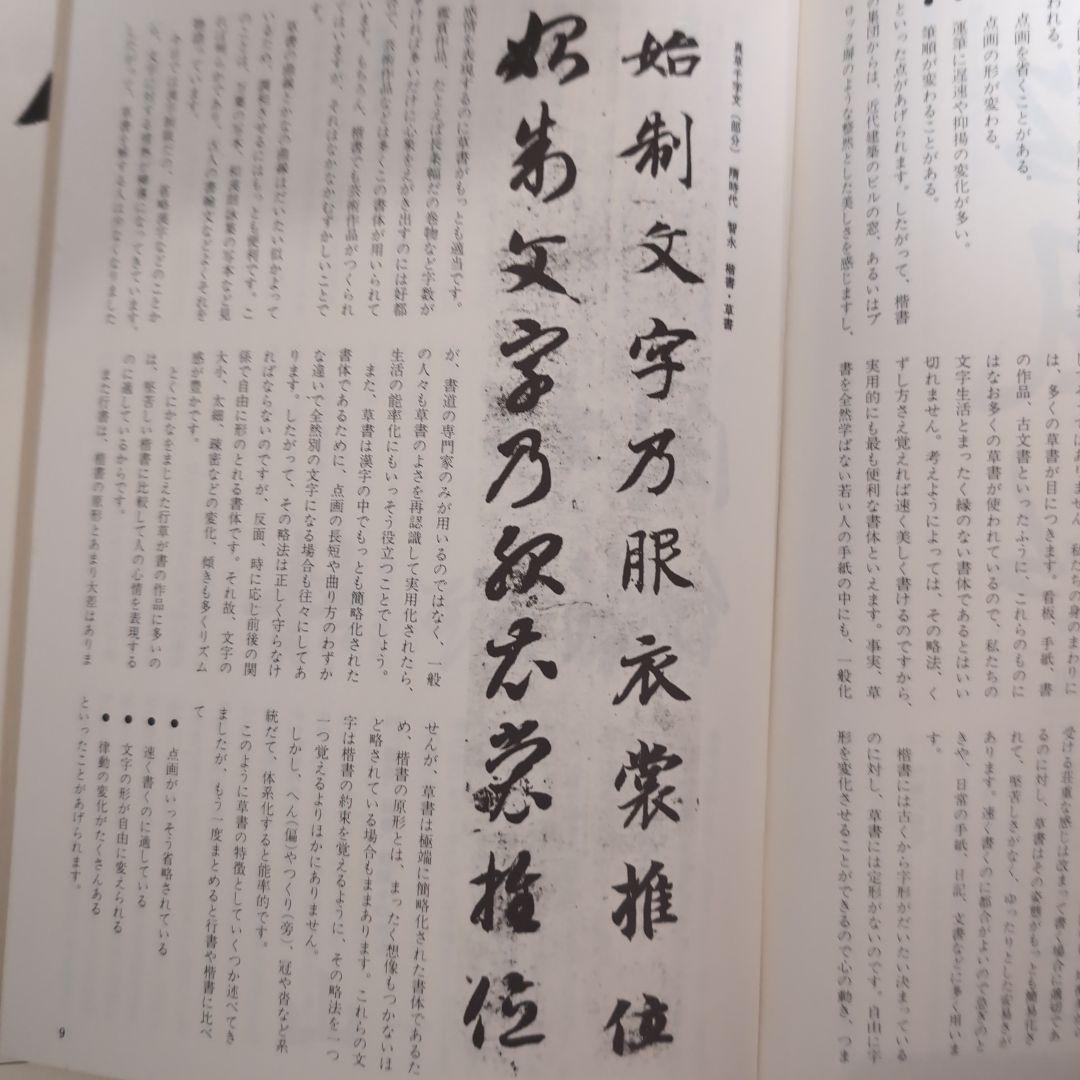 われる。
点画を省くことがある。
点画の形が変わる。
運筆に遅速や抑揚の変化が多い。
● 筆順が変わることがある。
といった点があげられます。したがって、楷書
の集団からは、近代建築のビルの窓、あるいはブ
ロック塀のような整然とした美しさを感じますし、
は、多くの草書が目につきます。看板、手紙、書
の作品、古文書といったふうに、これらのものに
はなお多くの草書が使われているので、私たちの
文字生活とまったく縁のない書体であるとはいい
切れません。考えようによっては、その略法、く
ずし方さえ覚えれば速く美しく書けるのですから、
実用的にも最も便利な書体といえます。事実、草
書を全然学ばない若い人の手紙の中にも、一般化
受ける荘重な感じは改まって書く場合に適切であ
るのに対し、草書はその姿態がもっとも簡易化さ
れて、堅苦しさがなく、ゆったりとした
あります。速く書くのに都合がよいので急ぎのと
きや、日常の手紙、日記、文書などに多く用いま
す。
楷書には古くから字形がだいたい決まっている
のに対し、草書には定形がないのです。自由に字
形を変化させることができるので心の動き、つま
真草千字文(部分) 隋時代 智永 楷書・草書
始制文字乃服衣裳推位
始制文字乃服衣裳推位
感情を表現するのに草書がもっとも適当です。
鑑賞作品、たとえば長条幅だの巻物など字数が
多ければ多いだけに心象をえがき出すのには好都
合で、芸術作品などは多くこの書体が用いられて
います。もちろん、楷書でも芸術作品がつくられ
てはいますが、それはなかなかむずかしいことで
す。
草書の曲線とかなの曲線はだいたい似かよって
いるため、調和させるにはもっとも便利です。こ
のことは、万葉の写本、和漢朗詠集の写本など見
ても明らかであり、古人の書簡文などもよくそれを
物語っています。
が、書道の専門家のみが用いるのではなく、一般
の人々も草書のよさを再認識して実用化されたら、
生活の能率化にもいっそう役立つことでしょう。
また、草書は漢字の中でもっとも簡略化された
書体であるために、点画の長短や曲り方のわずか
な違いで全然別の文字になる場合も往々にしてあ
ります。したがって、その略法は正しく守らなけ
ればならないのですが、反面、時に応じ前後の関
係で自由に形のとれる書体です。それ故、文字の
大小、太細、疎密などの変化、傾きも多くリズム
感が豊かです。
とくにかなをまじえた行草が書の作品に多いの
は、堅苦しい楷書に比較して人の心情を表現する
のに適しているからです。
また行書は、楷書の原形とあまり大差はありま
せんが、草書は極端に簡略化された書体であるた
め、楷書の原形とは、まったく想像もつかないほ
ど略されている場合もままあります。これらの文
字は楷書の約束を覚えるように、その略法を一つ
一つ覚えるよりほかにありません。
しかし、へん(偏)やつくり(旁)、冠や沓など系
統だて、体系化すると能率的です。
このように草書の特徴としていくつか述べてき
ましたが、もう一度まとめると行書や楷書に比べ
て
● 点画がいっそう省略されている
● 速く書くのに適している
● 文字の形が自由に変えられる
● 律動の変化がたくさんある
といったことがあげられます。
9